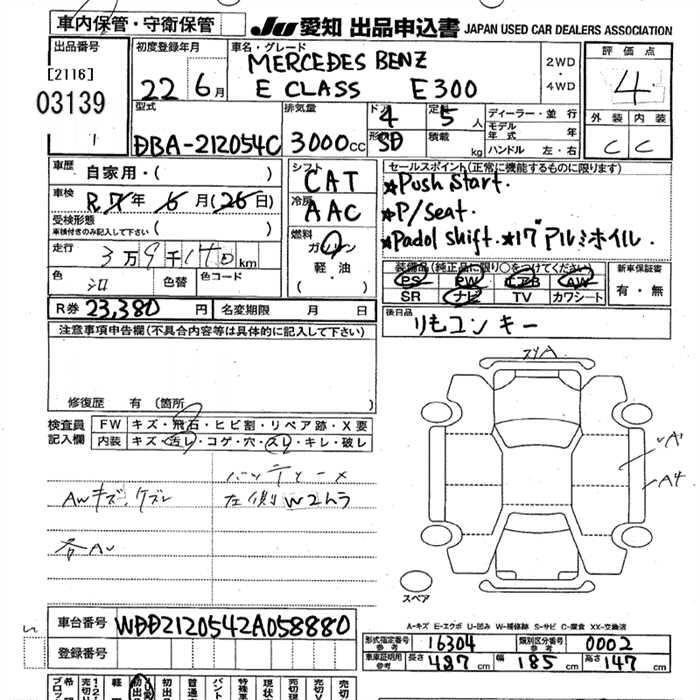 車内保管・守衛保管
JU 愛知 出品申込書 JAPAN USED CAR DEALERS ASSOCIATION
出品番号
[2116]
03139
1
初度登録年月
22 6月
車名・グレード
MERCEDES BENZ
E CLASS E300
2WD
・
4WD
評価点
4
外装 内装
C C
型式
DBA-212054C
排気量
3000cc
ドア
4
形状
SD
定員
5人
積載
kg
ディーラー・並行
モデル年式 年式
ハンドル 左・右
車歴
自家用・( )
車検
R7年6月(26日)
受検形態
車検付きのみ記入して下さい
( )
走行
3万9千140km
色
シロ
色替
色コード
シフト
CAT
冷房
AAC
燃料
ガソリン
軽・油
( )
セールスポイント(正常に機能するものに限ります)
★Push Start.
★P/Seat.
★Padol Shift. ★17"アルミホイル.
装備品(純正品に限り○をつけてください)
PS PW エアB AW
SR ナビ TV カワシート
新車保証書
有・無
R券 23,380円
名変期限 月 日
後日品
リモコンキー
注意事項申告欄(不具合内容等は具体的に記入して下さい)
修復歴 有 (箇所 )
検査員
記入欄
FW キズ・飛石・ヒビ割・リペア跡・X要
内装 キズ・汚レ・コゲ・穴・スレ・キレ・破レ
AWキズ、ケズレ
左側W2ムラ
各AU
A
A4
スペア
A-キズ E-エクボ U-凹み W-補修跡 S-サビ C-腐食 XX-交換済
車台番号
WDD2120542A058880
登録番号
型式指定番号
参考
16304
類別区分番号
参考
0002
車庫証明用
参考
長さ 487cm 幅 185cm 高さ 147cm